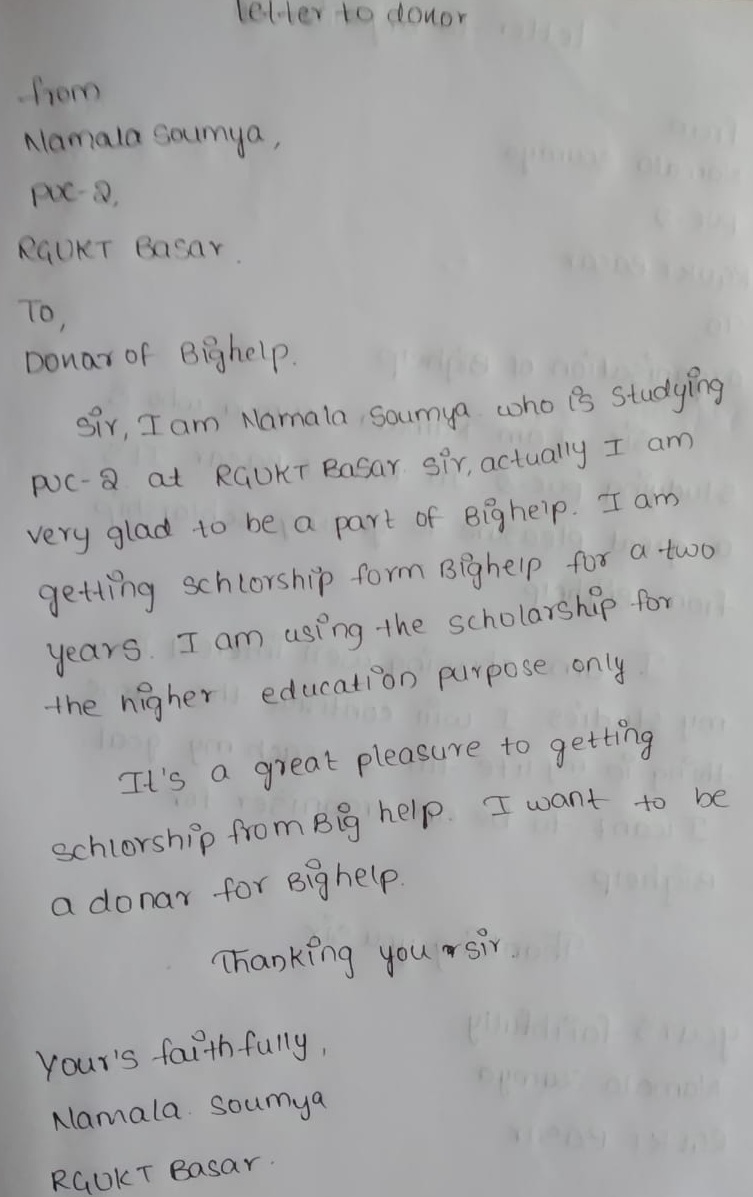 letter to donor
from
Namala Soumya,
PUC-2,
RGUKT Basar.
To,
Donar of Bighelp.
Sir, I am Namala Soumya who is studying
PUC-2 at RGUKT Basar sir, actually I am
very glad to be a part of Bighelp. I am
getting schlorship form Bighelp for a two
years. I am using the scholarship for
the higher education purpose only
It's a great pleasure to getting
schlorship from Big help. I want to be
a donar for Bighelp.
Thanking you sir.
Your's faithfully,
Namala Soumya
RGUKT Basar.